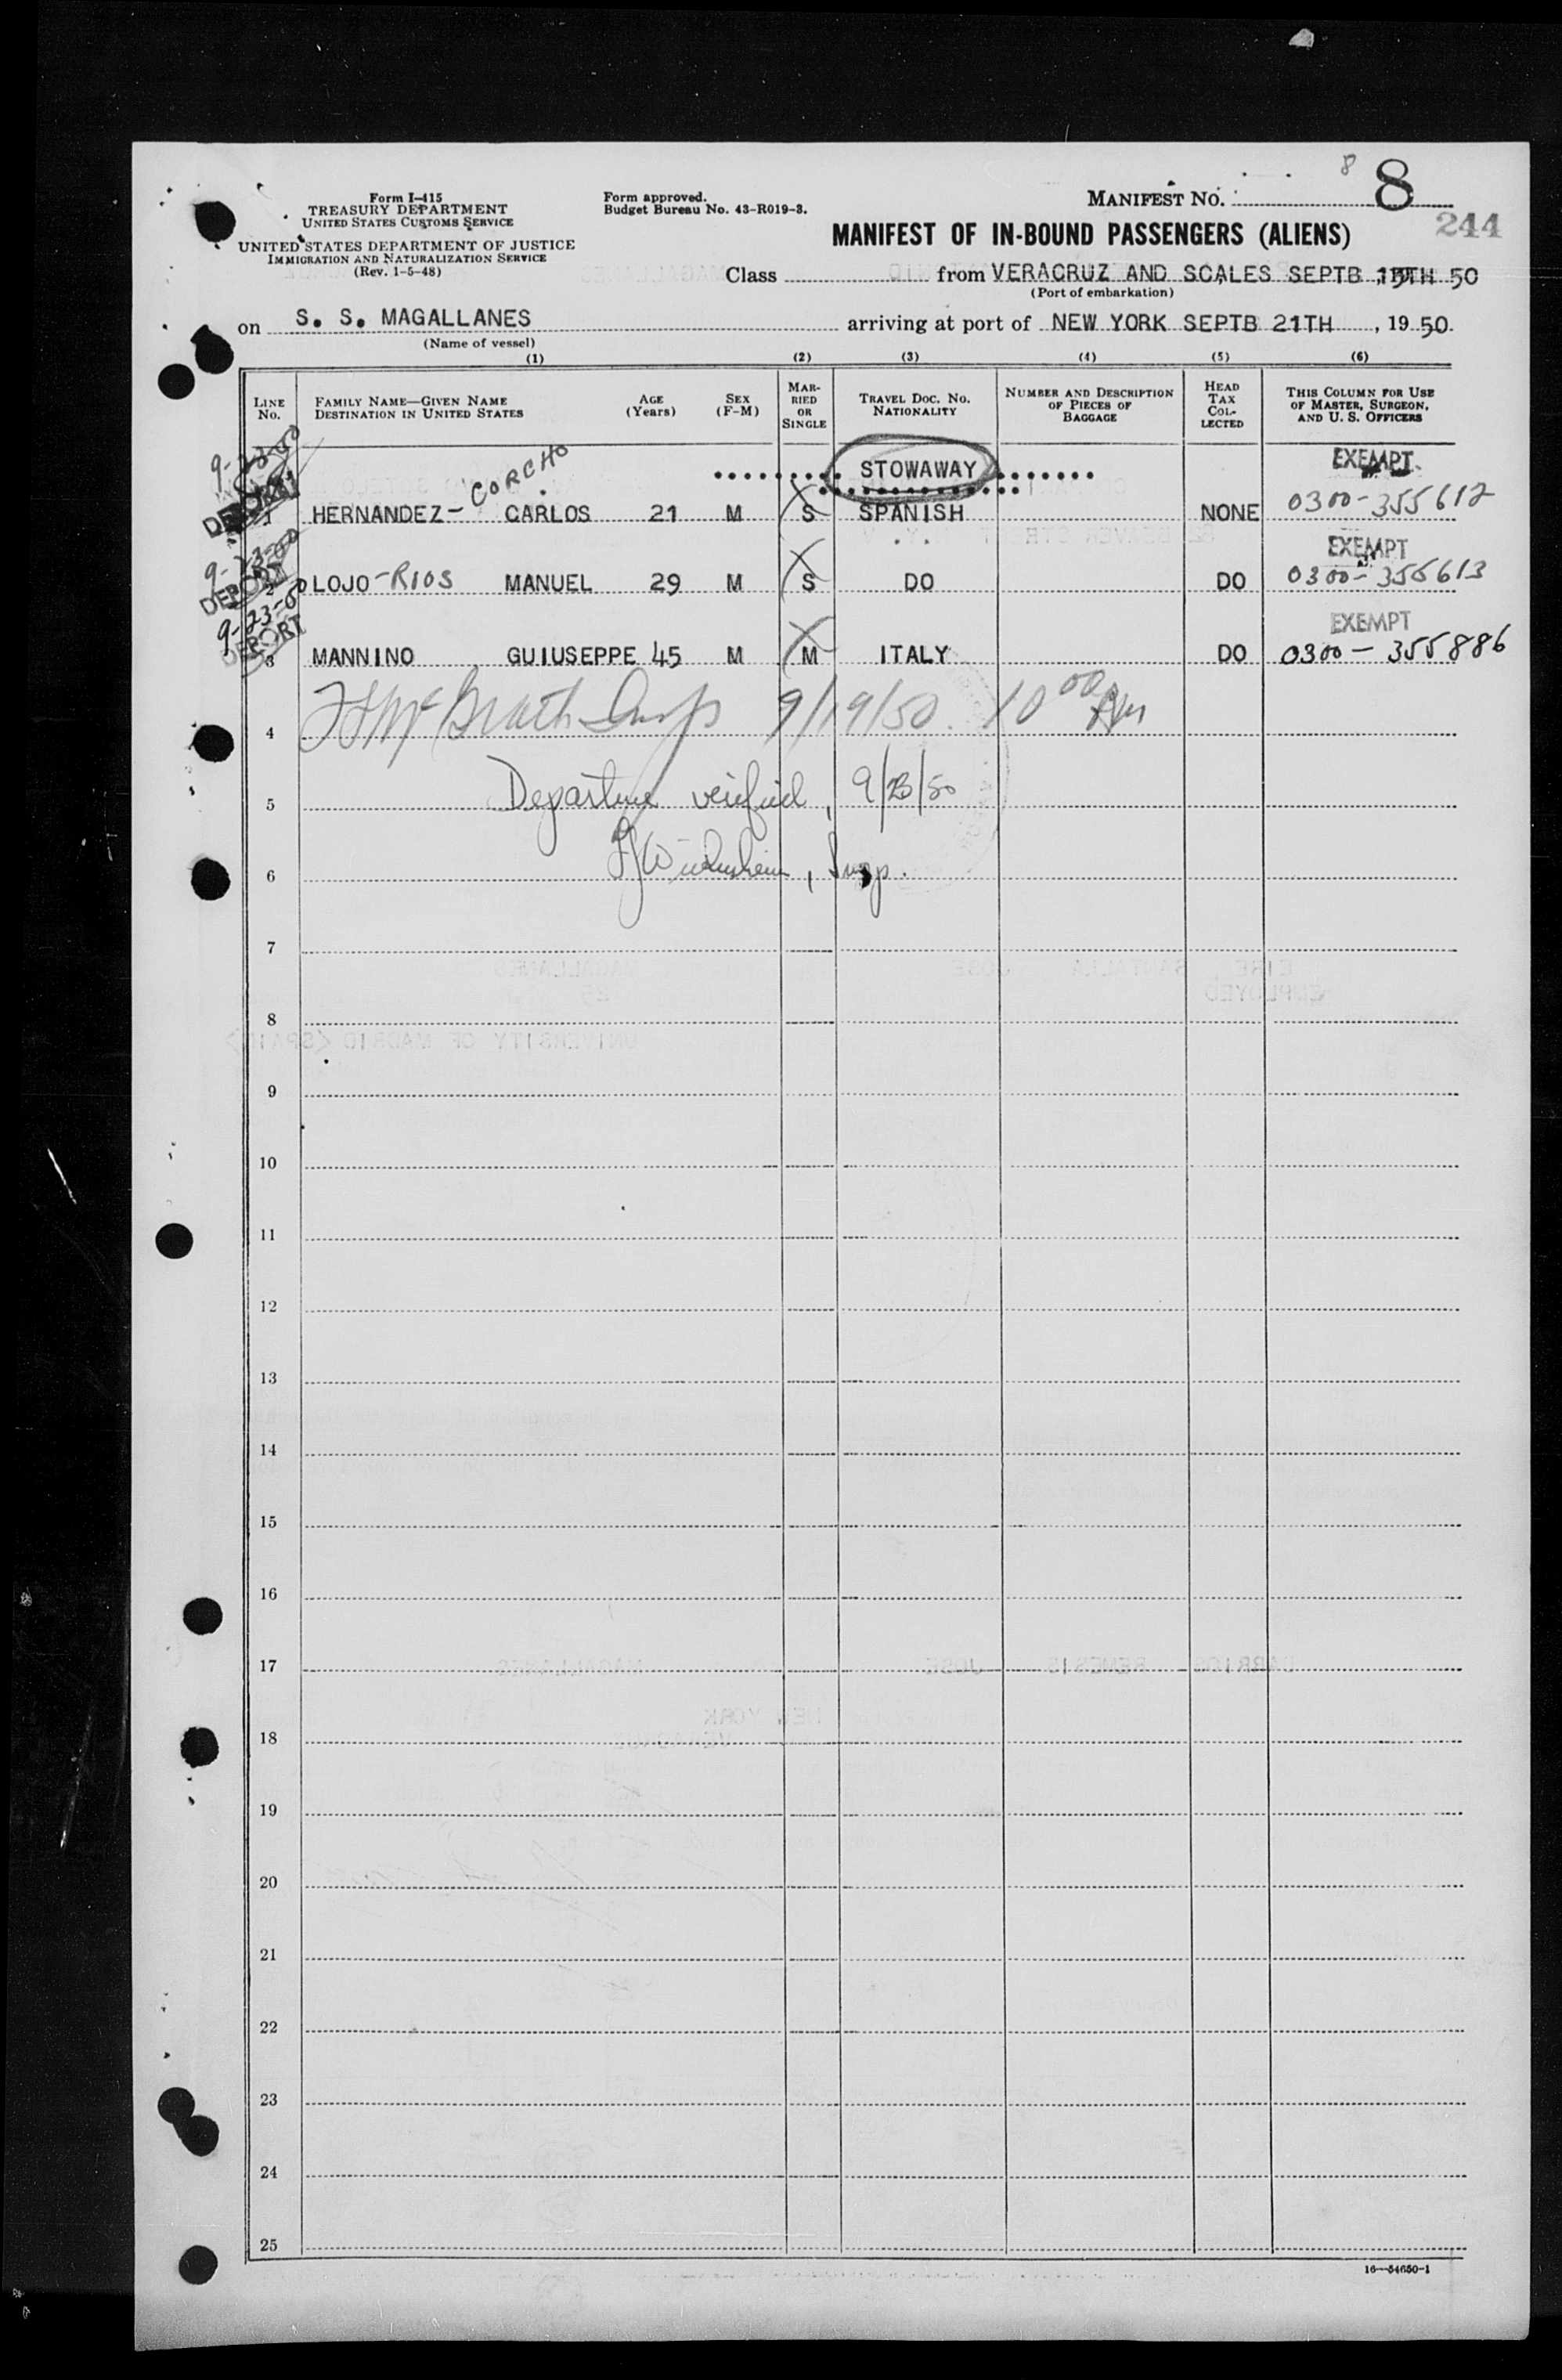 8
Form I-415
TREASURY DEPARTMENT
UNITED STATES CUSTOMS SERVICE
UNITED STATES DEPARTMENT OF JUSTICE
IMMIGRATION AND NATURALIZATION SERVICE
(Rev. 1-5-48)
Form approved.
Budget Bureau No. 43-R019-3.
MANIFEST NO. 8
244
MANIFEST OF IN-BOUND PASSENGERS (ALIENS)
Class from VERACRUZ AND SCALES SEPTB 50
(Port of embarkation)
on S. S. MAGALLANES arriving at port of NEW YORK SEPTB 21TH , 19 50.
(Name of vessel)
(1) (2) (3) (4) (5) (6)
LINE No. FAMILY NAME—GIVEN NAME DESTINATION IN UNITED STATES AGE (Years) SEX (F-M) MARRIED OR SINGLE TRAVEL DOC. NO. NATIONALITY NUMBER AND DESCRIPTION OF PIECES OF BAGGAGE HEAD TAX COLLECTED THIS COLUMN FOR USE OF MASTER, SURGEON, AND U. S. OFFICERS
STOWAWAY EXEMPT
9-23-50 DEPORT 1 HERNANDEZ-CORCHO CARLOS 21 M S SPANISH NONE 0300-355612
EXEMPT
9-23-50 DEPORT 2 LOJO-RIOS MANUEL 29 M S DO DO 0300-355613
EXEMPT
9-23-50 DEPORT 3 MANNINO GUIUSEPPE 45 M M ITALY DO 0300-355886
4 McGrath Insp 9/19/50 10 00
5 Departure verified, 9/23/50
6 , Insp.
7
8
9
10
11
12
13
14
15
16
17
18
19
20
21
22
23
24
25
16—54650-1